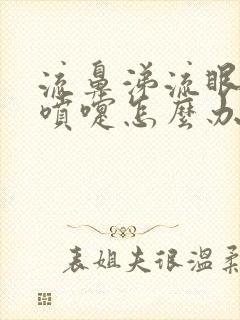 流鼻涕流眼
喷嚏怎麼办
表姐夫很温柔